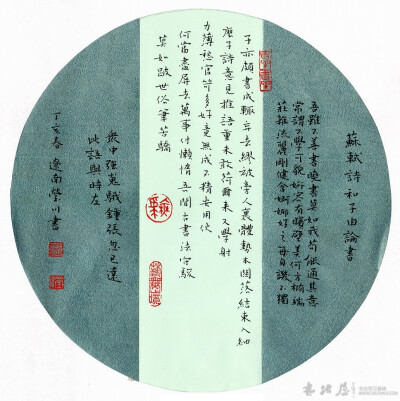 蘇軾詩和子由論書
吾雖不善書曉書莫如我苟能通其意
常謂不學可貌妍容有顰璧美何妨橢端
莊雜流麗剛健含婀娜好之每自譏不獨
子亦頗書成輒弃去繆被旁人裹體勢本闊落結束入細
麼子詩意見推語重未敢荷爾來又學射
力薄愁官笴多好竟無成不精安用夥
何當盡屏去萬事付懶惰吾聞古書法守駿
莫如跛世俗筆苦驕
衆中強嵬騀鍾張忽已遠
此語與時左
丁亥春 遼南瑩川書